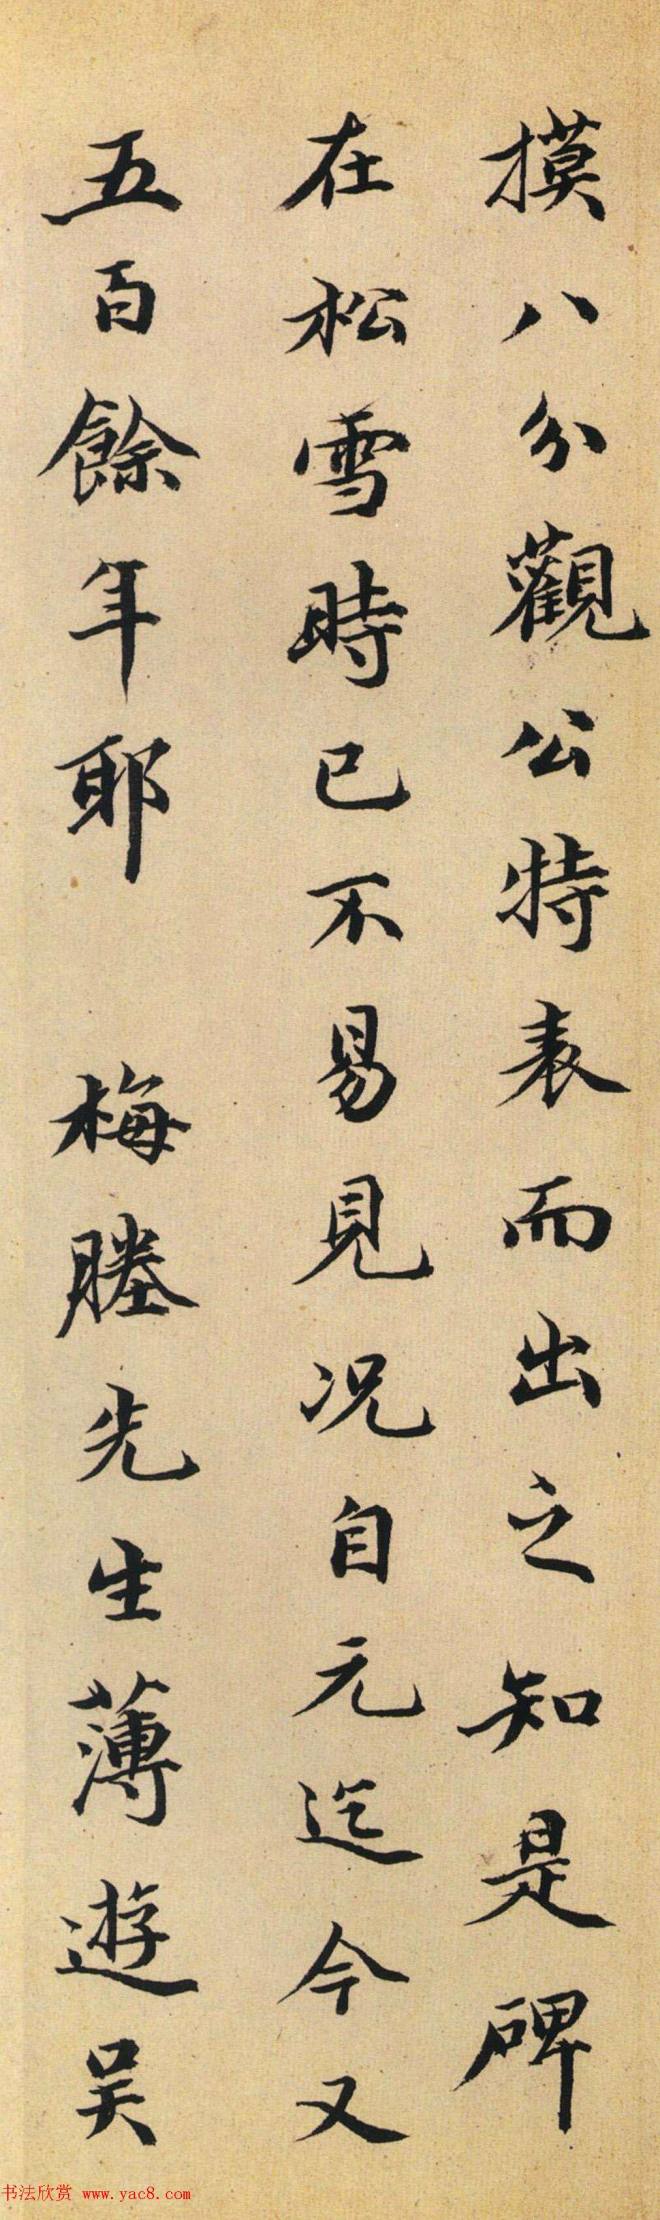 摸八分觀公特表而出之知是碑
在松雪時已不易見况自元迄今又
五百餘年耶 梅塍先生薄遊吴
书法欣赏 www.yac8.com